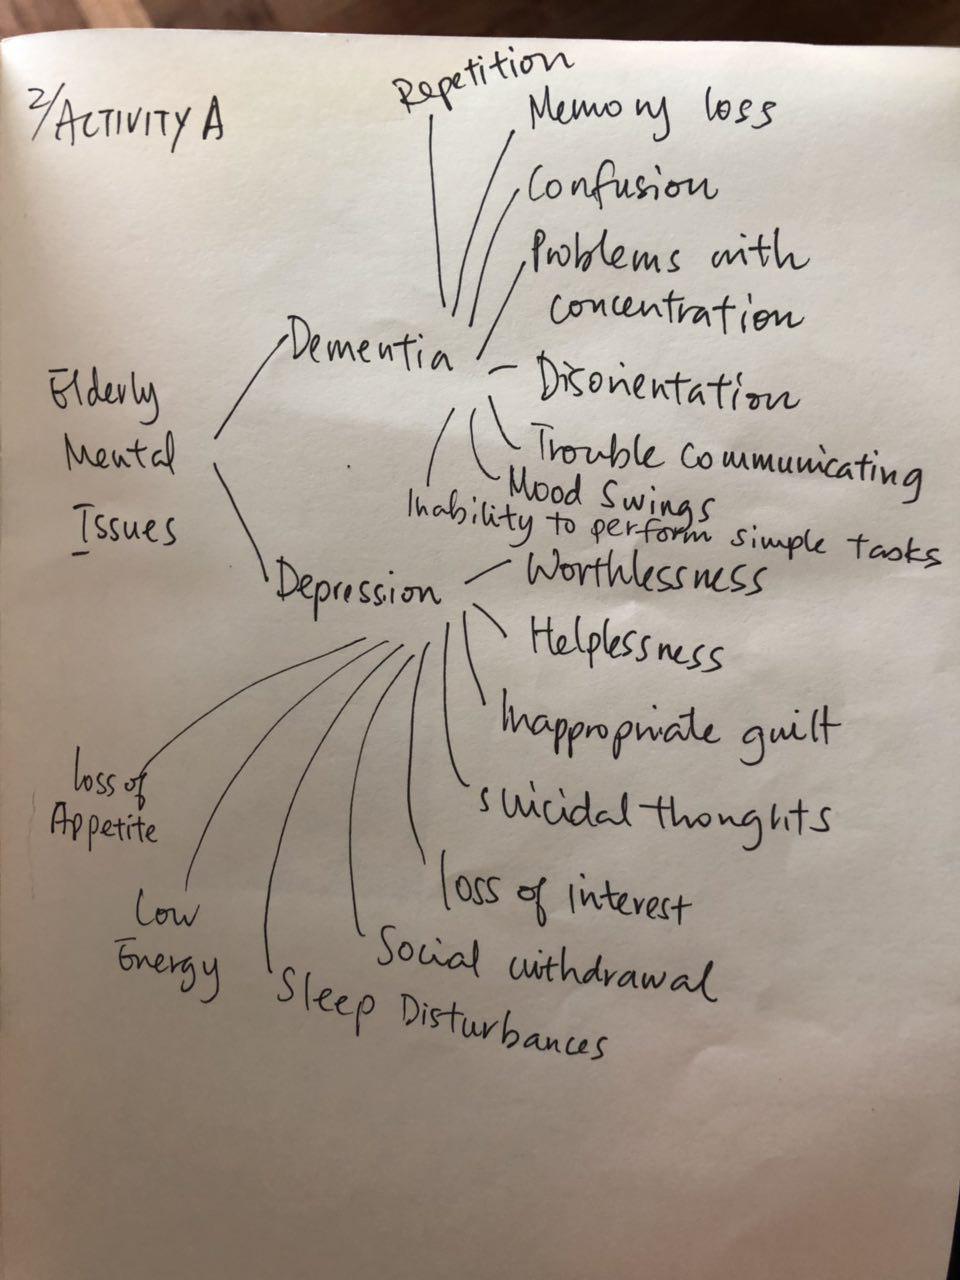 2/ACTIVITY A
Repetition
Memory loss
Confusion
Problems with
concentration
Dementia
Disorientation
Elderly
Mental
Issues
Trouble Communicating
Mood Swings
Inability to perform simple tasks
Depression
Worthlessness
Helplessness
Inappropriate guilt
suicidal thoughts
loss of interest
Social withdrawal
Sleep Disturbances
Low
Energy
loss of
Appetite